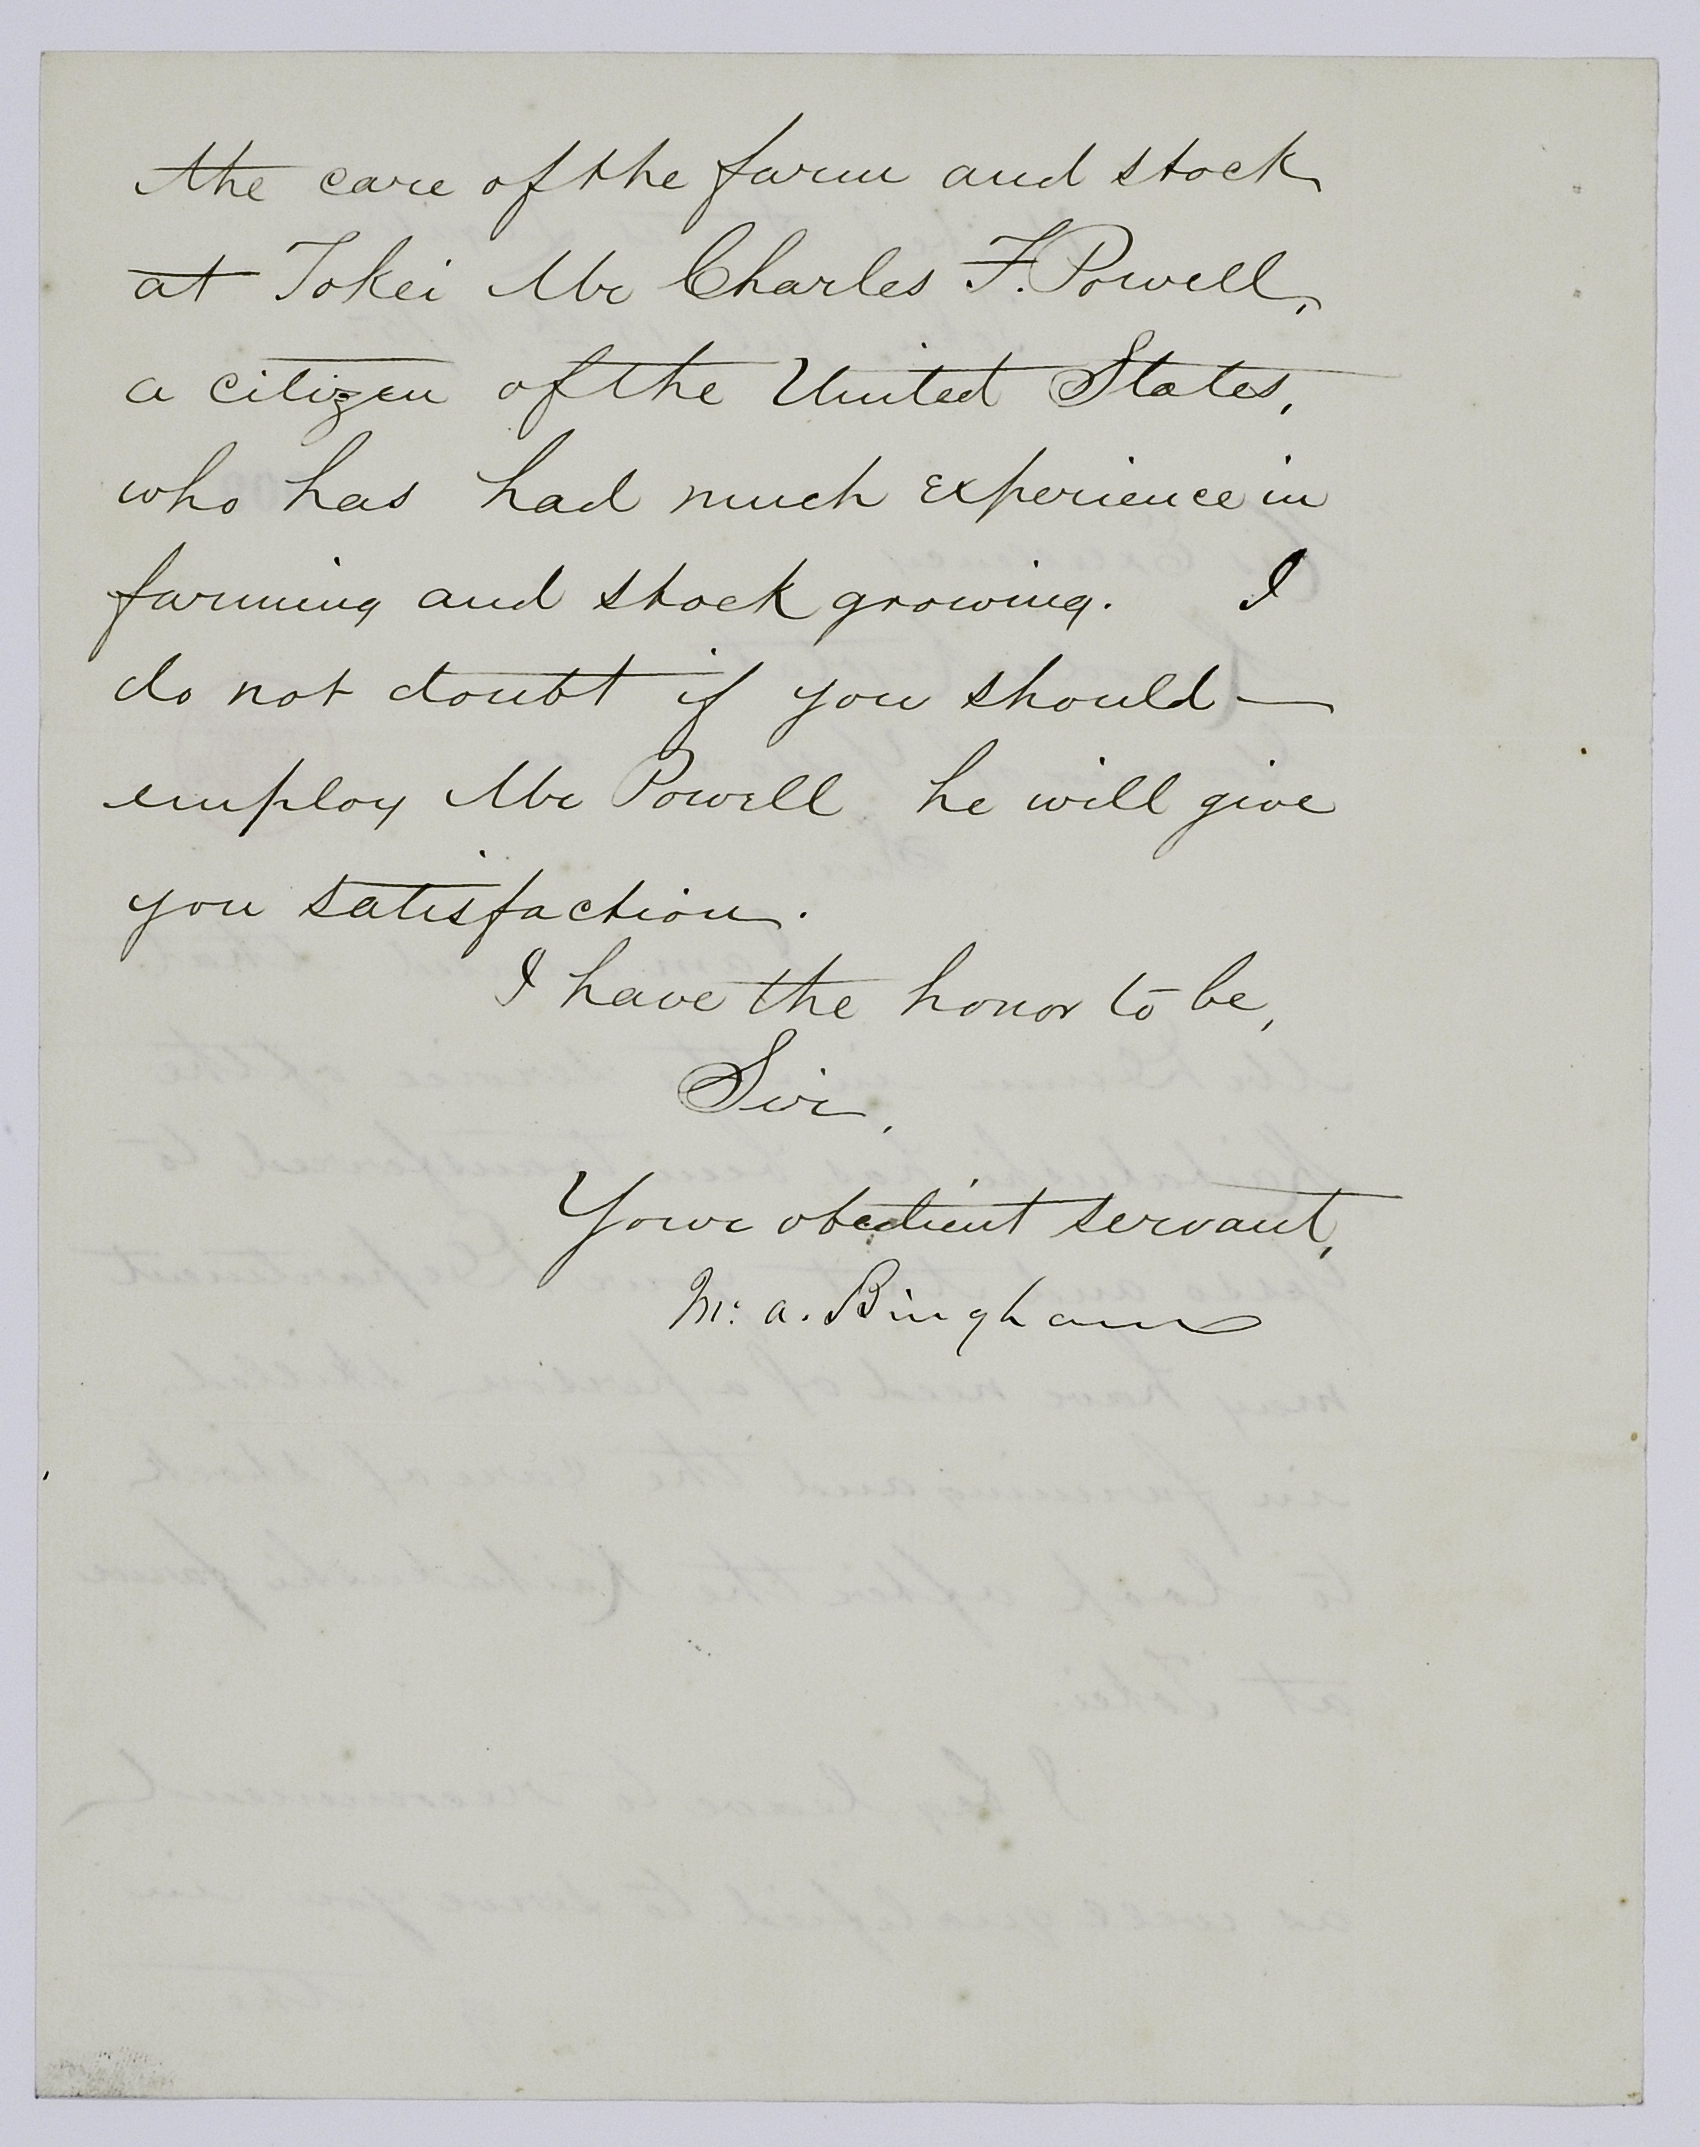 the care of the farm and stock
at Tokei Mr Charles F. Powell,
a citizen of the United States,
who has had much experience in
farming and stock growing. I
do not doubt if you should —
employ Mr Powell he will give
you satisfaction.
I have the honor to be,
Sir,
Your obedient servant,
Jn: A. Bingham